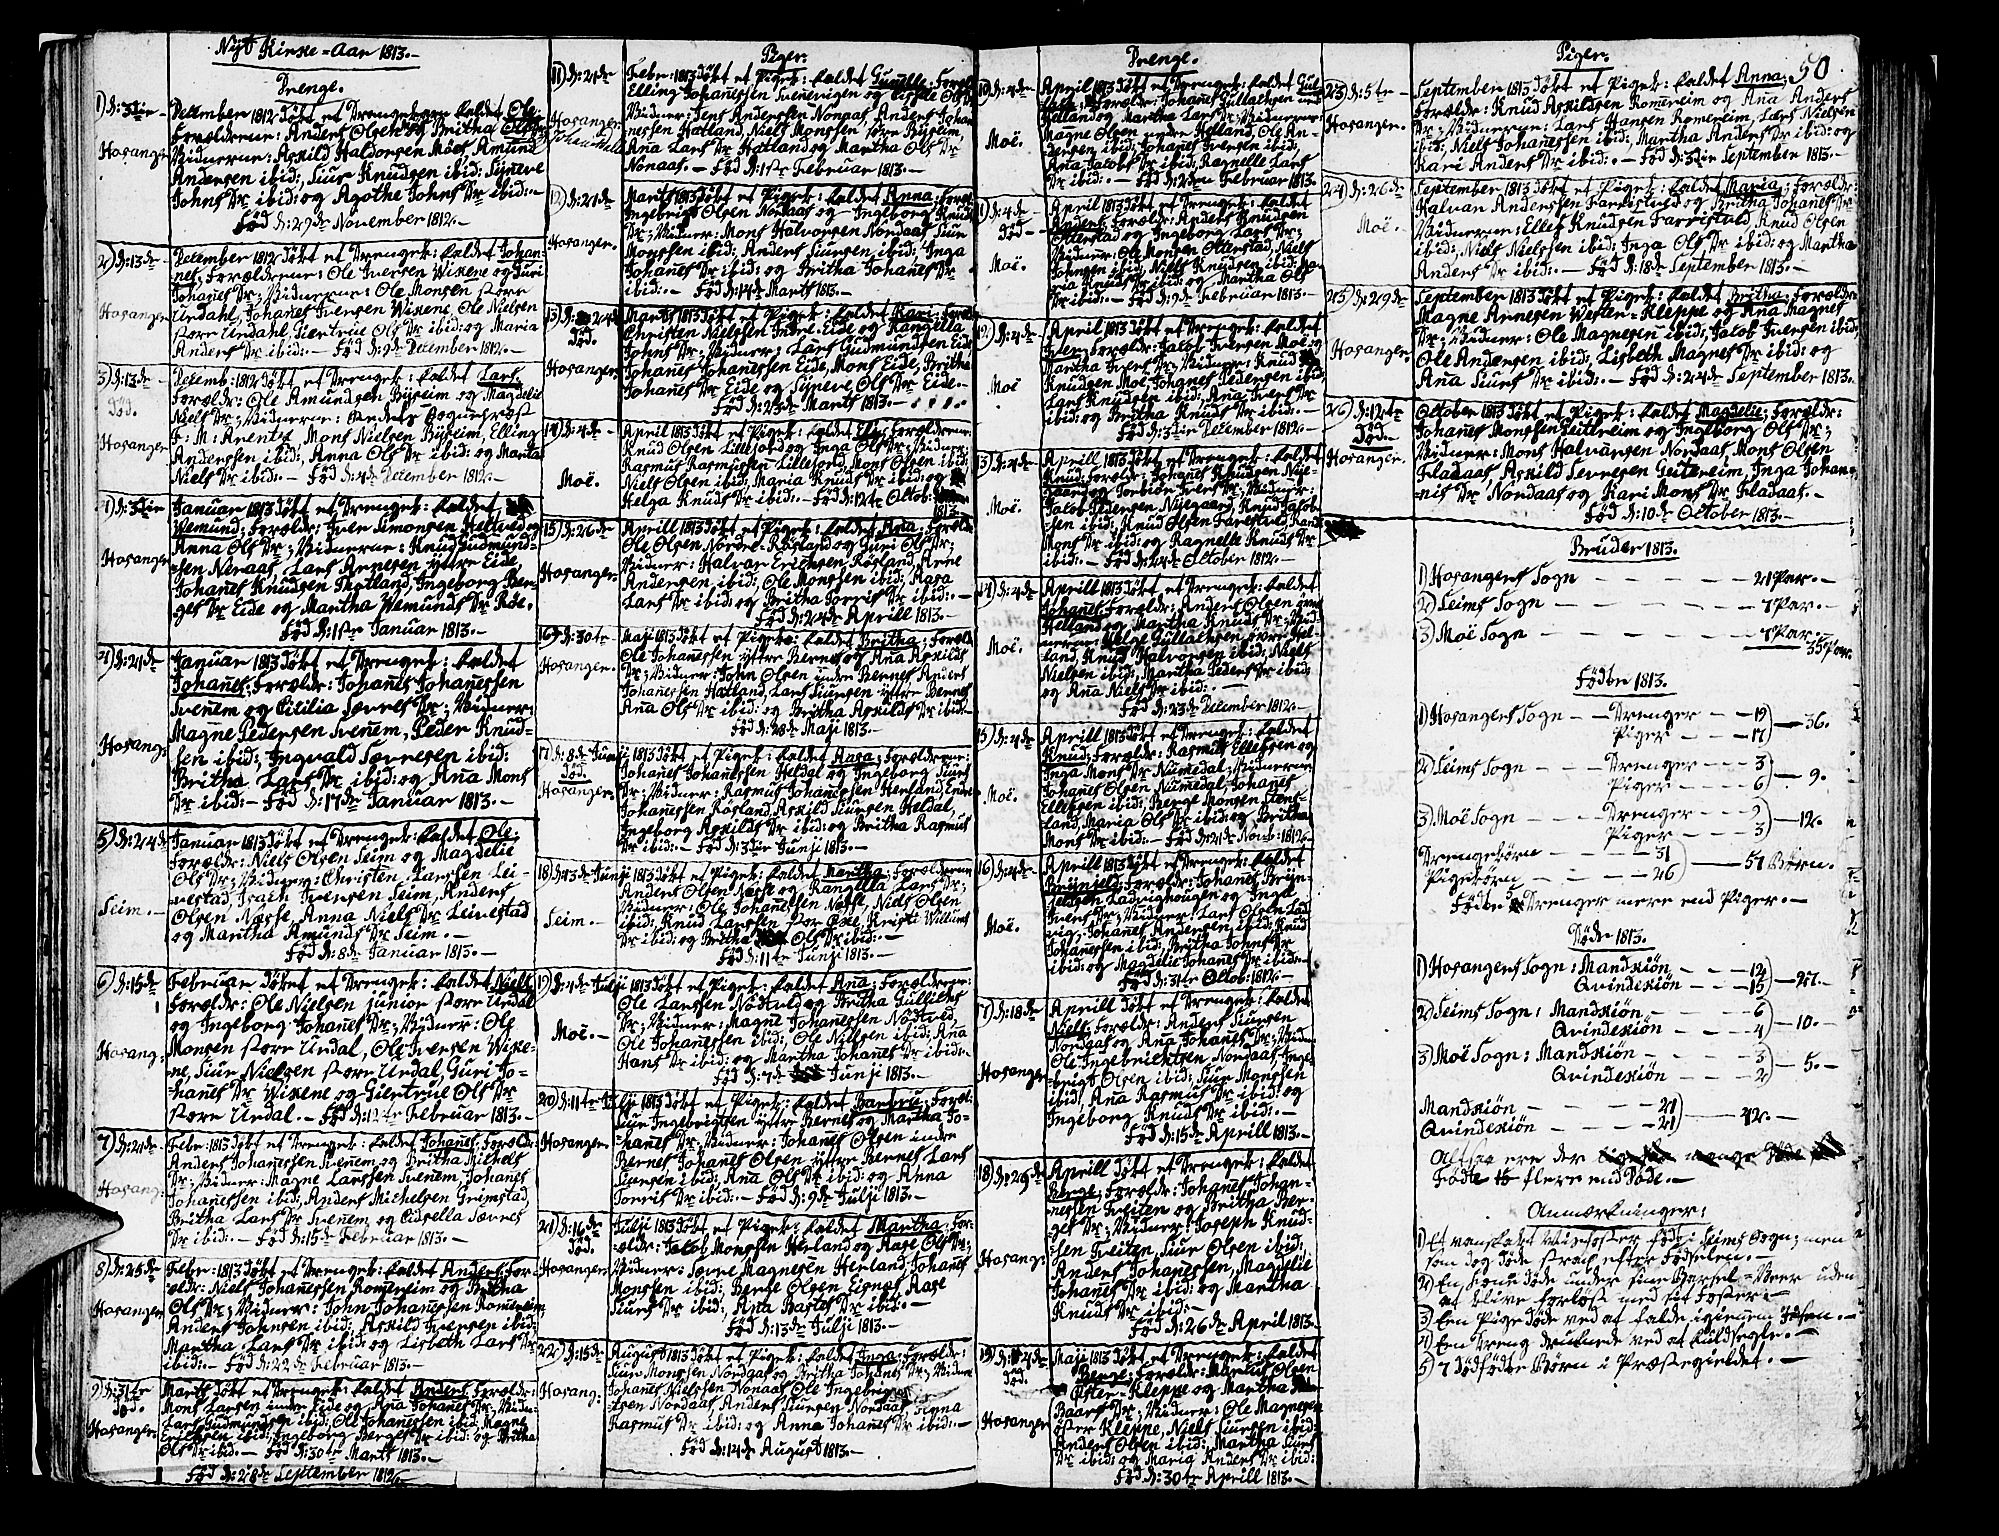 Nyt Kirke=Aar 1813.
Drenge.
1) D: 3die
Hosanger
December 1812 Döbt et Drengebarn kaldet Ole.
Forældrene: Anders Olsen og Britha
Vidnerne: Askild Haldorsen Moes Amund
Andersen ibid:, Siur Knudsen ibid: Synneve
Johns Dr ibid: og Agathe Johns Dr ibid:-
Föd d: 29de November 1812.
2) D: 13de
Hosanger
December 1812 Döbt et Drengeb: kaldet Johan-
nes, Forældrene: Ole Iversen Wikene og Guri
Johanes Dr; Vidnerne: Ole Monsen store
Urdahl, Johanes Iversen Wikene, Ole Nielsen
store Urdahl, Giertrue Ols Dr ibid: og Maria
Anders Dr ibid:- Föd d: 9de December 1812.
3) D: 13de
Död.
Hosanger
Decemb: 1812 Döbt et Drengeb: kaldet Lars
Forældr: Ole Amundsen Byseim og Magdelie
Niels Dr; Vidnerne:
F: M: Arentz, Mons Nielsen Byseim, Elling
Anderssen ibid:, Anna Ols Dr ibid: og Marita
Niels Dr ibid:- Föd d: 4de December 1812.
4) D: 3die
Hosanger
Januar 1813 Döbt et Drengeb: kaldet
Wemund; Forældr: Iver Simonsen Heltved og
Anna Ols Dr; Vidnerne: Knud Gudmund-
sen Nenaas, Lars Annesen yttre Eide,
Johanes Knudsen Thotland, Ingeborg Ber-
ges Dr Eide og Martha Wemunds Dr Röe.
Föd d: 1ste Januar 1813.
4) D: 21de
Hosang:
Januar 1813 Döbt et Drengeb: kaldet
Johanes; Forældr: Johanes Johanessen
Tvenem og Cicilia Sævres Dr; Vidner:
Magne Pedersen Tvenem, Peder Knud-
sen ibid: Ingvald Sævresen ibid:
Britha Lars Dr ibid: og Ana Mons
Dr ibid:- Föd d: 17de Januar 1813.
5) D: 24de
Seim.
Januar 1813 Döbt et Drengeb: kaldet Ole.
Forældr: Niels Olsen Seim og Magdelie
Ols Dr; Vidner: Christen Larssen Lei-
vestad, Isach Iversen Seim, Anders
Olsen Næsse, Anna Niels Dr Leivestad
og Martha Amunds Dr Seim.
Föd d: 8de Januar 1813.
6) D: 15de
Hosang:
Februar Döbt et Drengeb: kaldet Niels
Forældr: Ole Nielsen junior store Urdal
og Ingeborg Johanes Dr; Vidner: Ole
Monsen store Urdal, Ole Iversen Wike-
ne, Siur Nielsen store Urdal, Guri Jo-
hanes Dr Wikene og Giertrue Ols Dr
store Urdal. - Föd d: 12te Februar 1813.
7) D: 21de
Hosang:
Febr: 1813 Döbt et Drengeb: kaldet Johanes; Forældr:
Anders Johanessen Tvenem og Britha Michels
Dr; Vidner: Magne Larssen Tvenem, Johanes
Johanessen ibid:, Anders Michelsen Grimstad,
Britha Lars Dr Tvenem og Cidsella Sævres
Dr ibid:- Föd d: 15de Februar 1813.
8) D: 25de
Hosanger
Febr: 1813 Döbt et Drengeb: kaldet Anders; For-
ældr: Niels Johanessen Romereim og Britha
Ols Dr; Vidner: John Johanessen Romereim
Anders Johnsen ibid: Askild Iversen ibid:
Martha Lars Dr ibid: og Lisbeth Lars Dr
ibid:- Föd d: 22de Februar 1813.
9) D: 31te
Död.
Hosanger
Marts Döbt et Drengeb: kaldet Anders, Forældr:
Mons Larsen indre Eide og Ana Johanes Dr; Vidn:
Lars Gudmundsen ibid: Ole Johanessen ibid, Magne
Erichsen ibid: Ingeborg Berges Dr ibid: og Britha
Ols Dr ibid.- Föd d: 30te Marts 1813.
Föd d: 28de September 1812.
Piger.
11) D: 21de
Hosanger
Febr: 1813 Döbt et Pigeb: kaldet Gunelle; Foreld:
Elling Johanessen Tvenevigen og Ols Dr
Vidner: Jens Anderssen Nonaas, Anders Johan-
nessen Hatland, Niels Monssen store Byseim,
Ana Lars Dr Hatland og Martha Ols Dr
Nonaas.- Föd d: 1ste Februar 1813.
12) D: 21de
Hosanger
Marts 1813 Döbt et Pigeb: kaldet Anna; Foreld:
Ingebrigt Olsen Nordaas og Ingeborg Knuds
Dr; Vidner: Mons Halvorsen Nordaas, Siur
Monssen ibid: Anders Siursen ibid: Inga
Johanes Dr ibid: og Britha Johanes Dr
ibid:- Föd d: 14de Marts 1813.
13) D: 24de
Död.
Hosanger
Marts 1813 Döbt et Pigeb: kaldet Kari; Foreld:
Christen Nielssen Indre-Eide og Rangella
Johns Dr; Vidner: Lars Gudmundsen Eide
Johanes Johanessen Eide, Mons Eide, Britha
Johanes Dr Eide og Syneve Ols Dr Eide-
Föd d: 23de Marts 1813.-
14) D: 4de
Moë.
April 1813 Döbt et Pigeb: kaldet Elis; Forældrene:
Knud Olsen Lillefosd og Inga Ols Dr; Vidner:
Rasmus Rasmusen Lillefosd, Mons Olsen ibid:
Niels Olsen ibid, Maria Knuds Dr ibid: og
Helga Knuds Dr ibid:- Föd d: 12te Octob:
1813.
15) D: 26de
Hosanger
Aprill 1813 Döbt et Pigeb: kaldet Ana; Forældr:
Ole Olsen Nordre-Rösland og Guri Ols Dr;
Vidner: Halvar Erichsen Rösland, Arne
Andersen ibid: Ole Monssen ibid: Aasa
Lars Dr ibid: og Britha Torris Dr ibid:-
Föd d: 24de Aprill 1813.
16) D: 30te
Hosanger.
Maji 1813 Döbt et Pigeb: kaldet Britha; Foræld:
Ole Johanessen yttre Bernes og Ana Askilds
Dr; Vidner: John Olsen indre Bernes Anders
Johanessen Hatland, Lars Siursen yttre Bernes
Ana Ols Dr ibid: og Britha Askilds Dr ibid:-
Föd d: 28de Maji 1813.-
17) D: 8de Junji
Död.
Hosanger.
1813 Döbt et Pigeb: kaldet Aasa; Forældrene:
Johanes Johanessen Heldal og Ingeborg Siurs
Dr; Vidner: Rasmus Johanessen Herland,
Johanessen Rösland, Askild Siursen Heldal,
Ingeborg Askilds Dr ibid: og Britha Rasmus
Dr ibid:- Föd d: 3die Junji 1813.-
18) D: 13de Junji
Seim.
1813 Döbt et Pigeb: kaldet Martha; Forældrene
Anders Olsen Næse og Rangella Lars Dr;
Vidner: Ole Johanessen Næsse, Niels Olsen
ibid: Knud Larssen store Öxe, Kristi Willums
Dr ibid: og Britha Ols Dr ibid:-
Föd d: 11te Junji 1813.-
19) D: 4de Julji
Moë.
1813 Döbt et Pigeb: kaldet Ana; Forældrene:
Ole Larssen Nöstved og Britha Gulliches
Dr; Vidner: Magne Johanessen Nöstved
Ole Johanessen ibid: Ole Nilssen ibid: Ana
Hans Dr ibid: og Martha Johanes Dr ibid:-
Föd d: 7de Junji 1813.-
20) D: 11te Julji
Hosanger
1813 Döbt et Pigeb: kaldet Barbru; Foræl:
Siur Ingebrigtsen yttre Bernes og Martha Jo-
hanes Dr; Vidner: Johanes Olsen indre
Bernes Johanes Olsen yttre Bernes Lars
Siursen ibid: Ana Ols Dr ibid: og Anna
Torris Dr ibid:- Föd d: 9de Julji 1813.-
21) D: 16de
Död.
Hosanger
Julji 1813 Döbt et Pigeb: kaldet Martha; For-
ældr: Jacob Monssen Herland og Aase Ols Dr;
Vidner: Sævre Magnesen Herland, Johanes
Monssen ibid: Berge Olsen Eignes, Aase
Siurs Dr ibid:, Ana Baars Dr ibid.-
Föd d: 13de Julji 1813.-
22) D: 15de
Hosang:
August 1813 Döbt et Pigeb: kaldet Inga; Forældr:
Siur Monssen Nordgas og Britha Johanes Dr; Vidner
Johanes Nielssen Nonaas Ole Ingebrigt-
sen Nordaas Anders Siursen Nordaas
Rasmus Dr ibid: og Anna Johanes Dr ibid:-
Föd d: 14de August 1813.-
Drenge.
10) D: 4de
Moë.
April 1813 Döbt et Drengeb: kaldet Gul-
Forældr: Johanes Gullachsen
Helland og Martha Lars Dr; Vidnerne:
Magne Olsen indre Helland, Ole An-
dersen ibid: Johanes Iversen ibid:
Ana Jacobs Dr ibid: Ragnelle Lars
Dr ibid:- Föd d: 2den Februar 1813.
11) D: 4de
Död
Moë.
April 1813 Döbt et Drengeb: kaldet
Anders; Forældr: Anders Knudsen
Otterstad og Ingeborg Lars Dr;
Vidner: Ole Monsen Otterstad, Niels
Johnsen ibid: Niels Knudsen ibid: Ma-
ria Knuds Dr ibid: og Martha Ols
Dr ibid:- Föd d: 9de Februar 1813.-
12) D: 4de
Moë
April 1813 Döbt et Drengeb: kaldet
Iver; Forældr: Jacob Iversen Moë og
Martha Ivers Dr; Vidner: Knud
Knudsen Moë, Johanes Pedersen ibid:
Lars Knudsen ibid: Ana Ivers Dr
ibid: og Britha Knuds Dr ibid:-
Föd d: 3die December 1812.
13) D: 4de
Moë.
Aprill 1813 Döbt et Drengeb: kaldet
Knud; Forældr: Johanes Knudsen Nye-
gaard og Torbiör Ivers Dr; Vidner:
Jacob Pedersen Nyegaard, Knud Jacob-
sen ibid: Knud Olsen Farestved, Randi
Mons Dr ibid: og Ragnelle Knuds Dr
ibid:- Föd d: 24de October 1812.-
14) D: 4de
Moë.
Aprill 1813 Döbt et Drengeb: kaldet
Johanes; Forældr: Anders Olsen övre
Helland og Martha Knuds Dr; Vid-
nerne: Helge Gullachsen övre Hel-
land, Knud Halvorsen ibid: Niels
Nielsen ibid: Martha Peders Dr ibid:
og Ana Niels Dr ibid:-
Föd d: 23de December 1812.-
15) D: 4de
Moë.
Aprill 1813 Döbt et Drengeb: kaldet
Knud; Forældr: Rasmus Ellefsen og
Inga Mons Dr Numedal; Vidnerne
Johanes Olsen Numedal, Johanes
Ellefsen ibid: Berge Monsen Stens-
land, Maria Ols Dr ibid: og Britha
Mons Dr ibid:- Föd d: 21de Novb: 1812.
16) D: 4de
Moë.
Aprill 1813 Döbt et Drengeb: kaldet
Brynjeld; Forældr: Johanes Bryn-
jeldsen Ladvighougen og Inga
Ivers Dr; Vidner: Lars Olsen Lad-
vig, Johanes Andersen ibid: Knud
Johanessen ibid: Britha Johns Dr
ibid: og Magdelie Johanes Dr ibid:-
Föd d: 31te Octob: 1812.-
17) D: 18de
Hosanger
Aprill 1813 Döbt et Drengeb: kaldet
Niels; Forældr: Anders Siursen
Nordgas og Ana Johanes Dr; Vidn:
Ole Ingebrichtsen Nordaas, Inge-
brigt Olsen ibid: Siur Monssen
ibid: Ana Rasmus Dr ibid: og
Ingeborg Knuds Dr ibid:-
Föd d: 15de Aprill 1813.-
18) D: 29de
Hosang:
Aprill Döbt et Drengeb: kaldet
Berge; Forældr: Johanes Johan-
nessen Tveiten og Britha Ber-
ges Dr; Vidner: Joseph Knud-
sen Tveiten, Siur Olsen ibid:
Anders Johanessen, Magdelie
Johanes Dr ibid: og Martha
Knuds Dr ibid:-
Föd d: 26de April 1813.
19) D: 4de
Död.
Hosanger
Maji 1813 Döbt et Drengeb: kaldet
Berge; Forældr: Marcus Olsen
Öster-Kleppe og Martha
Baars Dr; Vidner: Ole Magnesen
öster Kleppe, Niels Siursen ibid
Anders Olsen ibid: Martha Siurs
Dr ibid: og Maria Anders Dr ibid:
Föd d: 30te Aprill 1813.-
50
Piger.
23) D: 5te
Hosanger.
September 1813 Döbt et Pigeb: kaldet Anna;
Forældr: Knud Askildsen Romereim og Ana Anders
Dr; Vidnerne: Lars Hansen Romereim, Lars Nielsen
ibid, Niels Johanessen ibid; Martha Anders Dr ibid: og
Kari Anders Dr ibid:.- Föd d: 3die September 1813.-
24) D: 26de
Moë.
September 1813 Döbt et Pigeb: kaldet Maria; Forældr:
Halvar Anderssen Farristved og Britha Johanes Dr
Vidnerne: Ellef Knudsen Farristved, Knud Olsen
ibid:, Niels Nielssen ibid: Inga Ols Dr ibid: og Martha
Anders Dr ibid:.- Föd d: 18de September 1813.-
25) D: 29de
Hosanger.
September 1813 Döbt et Pigeb: kaldet Britha; Forældr:
Magne Arnesen Wester-Kleppe og Ana Magnes
Dr; Vidner: Ole Magnesen ibid; Jacob Iversen ibid;
Ole Andersen ibid: Lisbeth Magnes Dr ibid: og
Ana Siurs Dr ibid:.- Föd d: 24de September 1813.
26) D: 12te
Död.
Hosanger.
October 1813 Döbt et Pigeb: kaldet Magdelie; Forældr:
Johanes Monssen Geitreim og Ingeborg Ols Dr;
Vidner: Mons Halvarsen Nordaas, Mons Olsen
Fladaas, Askild Sevresen Geitreim, Inga Johan-
nis Dr Nordaas og Kari Mons Dr Fladaas.-
Föd d: 10de October 1813.-
Bruder 1813.
1) Hosangers Sogn - - - - - - 21 Par.-
2) Seims Sogn - - - - - - 7 Par.-
3) Moë Sogn - - - - - - 7 Par.
35 Par.
Födte 1813.
1) Hosangers Sogn - - Drenger - - 19
Piger - - - 17 - 36.
2) Seims Sogn - - - Drenger - - - 3
Piger - - - 6 - 9.
3) Moë Sogn - - - Drenger - - - 9
Piger - - - 3 - 12.
Drengebörn - - - - 31
Pigebörn - - - - 26 - 57 Börn.
Födte 5 Drenger mere end Piger.-
Döde 1813.
1) Hosangers Sogn: Mandkiön - - - 12
Qvindekiön - - - 15 - 27.
2) Seims Sogn: Mandkiön - - - - 6
Qvindekiön - - - 4 - 10.
3) Moë Sogn: Mandkiön - - - - 3
Qvindekiön - - - 2 - 5.
Mandkiön - - - - - 21
Qvindekiön - - - - 21 - 42.
Altsaa ere der
Födte 15 flere end Döde.-
Anmærkninger:
1) Et vanskabt Misfoster föd i Seims Sogn; men
som dog döde strax efter Födselen.-
2) En Kone döde under sine Barsel=Veer uden
at blive forlöst med sit Foster.-
3) En Pige döde ved at falde igienem Isen.-
4) En Dreng druknede ved at Kuldseyle.-
5) 7 dödfödte Börn i Præstegieldet.-